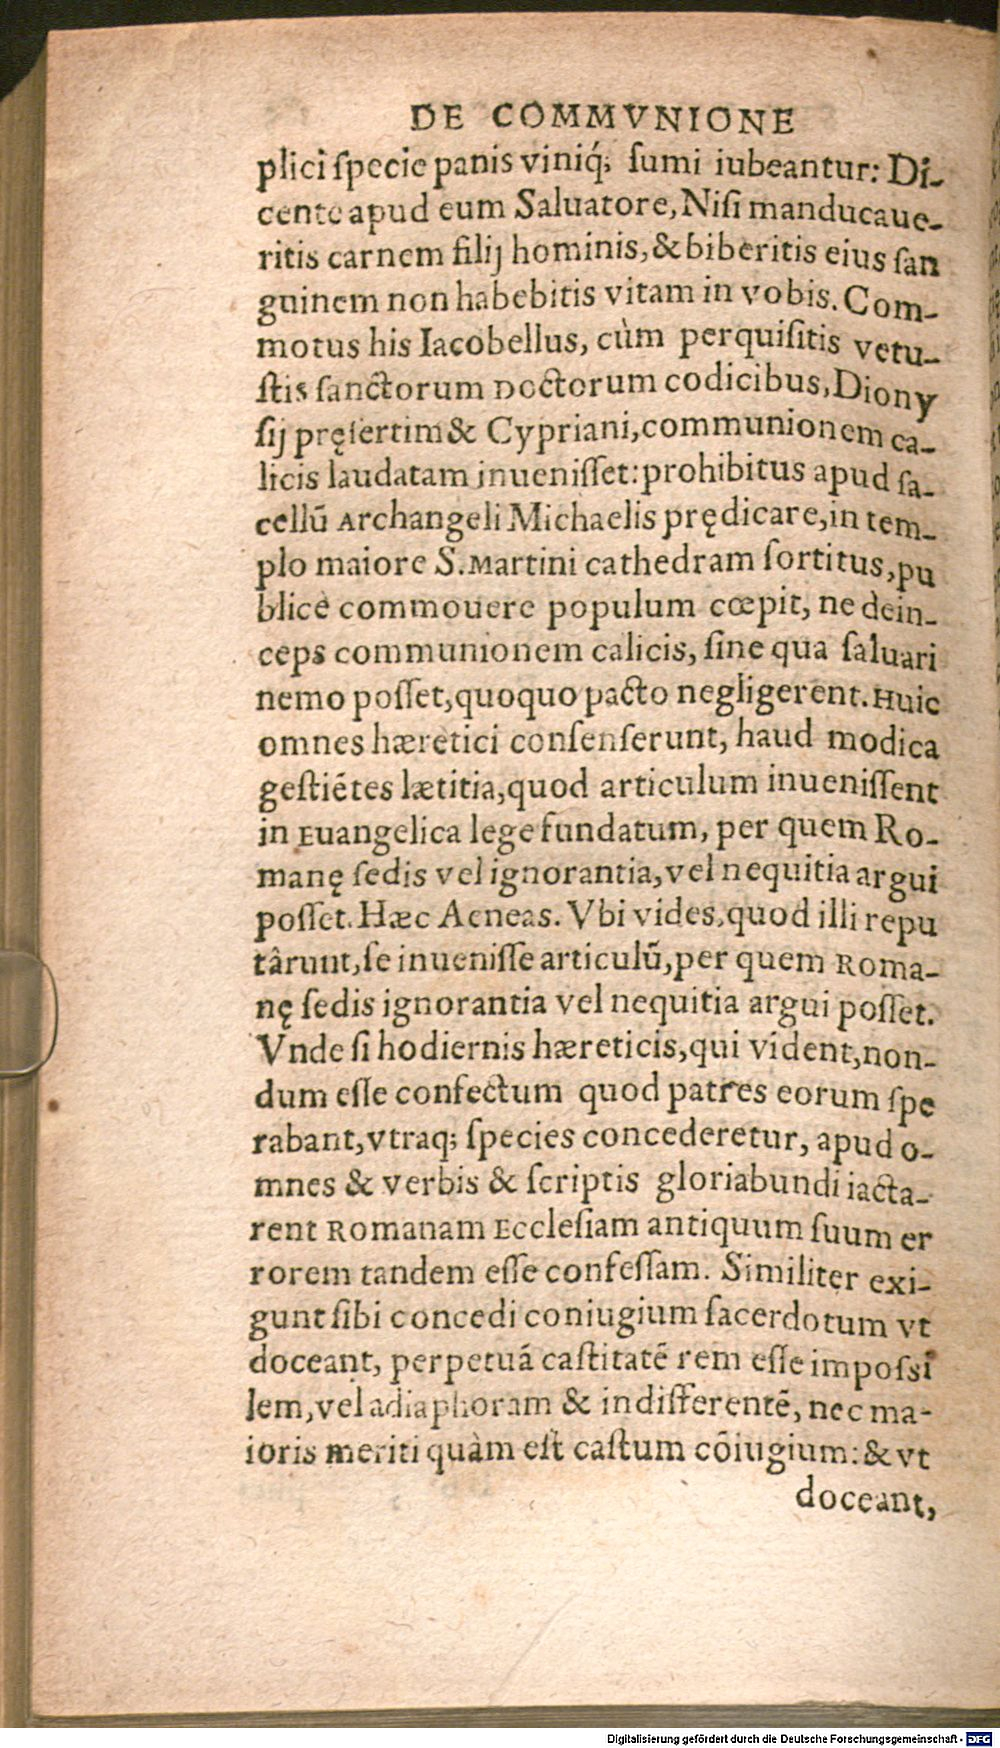 DE COMMVNIONE
plici ſpecie panis viniq́; ſumi iubeantur: Di-
cente apud eum Saluatore, Niſi manducaue-
ritis carnem filij hominis, & biberitis eius ſan
guinem non habebitis vitam in vobis. Com-
motus his Iacobellus, cùm perquiſitis vetu-
ſtis ſanctorum Doctorum codicibus, Diony
ſij pręſertim & Cypriani, communionem ca-
licis laudatam inueniſſet: prohibitus apud ſa-
cellū Archangeli Michaelis prędicare, in tem-
plo maiore S. Martini cathedram ſortitus, pu
blicè commouere populum cœpit, ne dein-
ceps communionem calicis, ſine qua ſaluari
nemo poſſet, quoquo pacto negligerent. Huic
omnes hæretici conſenſerunt, haud modica
geſtiētes lætitia, quod articulum inueniſſent
in Euangelica lege fundatum, per quem Ro-
manę ſedis vel ignorantia, vel nequitia argui
poſſet. Hæc Aeneas. Vbi vides, quod illi repu
târunt, ſe inueniſſe articulū, per quem Roma-
nę ſedis ignorantia vel nequitia argui poſſet.
Vnde ſi hodiernis hæreticis, qui vident, non-
dum eſſe confectum quod patres eorum ſpe
rabant, vtraq; ſpecies concederetur, apud o-
mnes & verbis & ſcriptis gloriabundi iacta-
rent Romanam Eccleſiam antiquum ſuum er
rorem tandem eſſe confeſſam. Similiter exi-
gunt ſibi concedi coniugium ſacerdotum vt
doceant, perpetuā caſtitatē rem eſſe impoſsi
lem, vel adiaphoram & indifferentē, nec ma-
ioris meriti quàm eſt caſtum cōiugium: & vt
doceant,
Digitalisierung gefördert durch die Deutsche Forschungsgemeinschaft - DFG